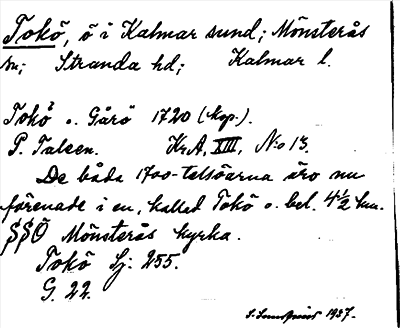 Tokö, ö i Kalmar sund; Mönsterås
sn; Stranda hd; Kalmar l.
Tokö o. Gårö 1720 (kop.).
P. Talcen. KrA, XIII, N:o 13.
De båda 1700-talsöarna äro nu
förenade i en, kallad Tokö o. bel. 4½ km.
SSÖ Mönsterås kyrka.
Tokö Sj: 255.
G. 22.
1937.